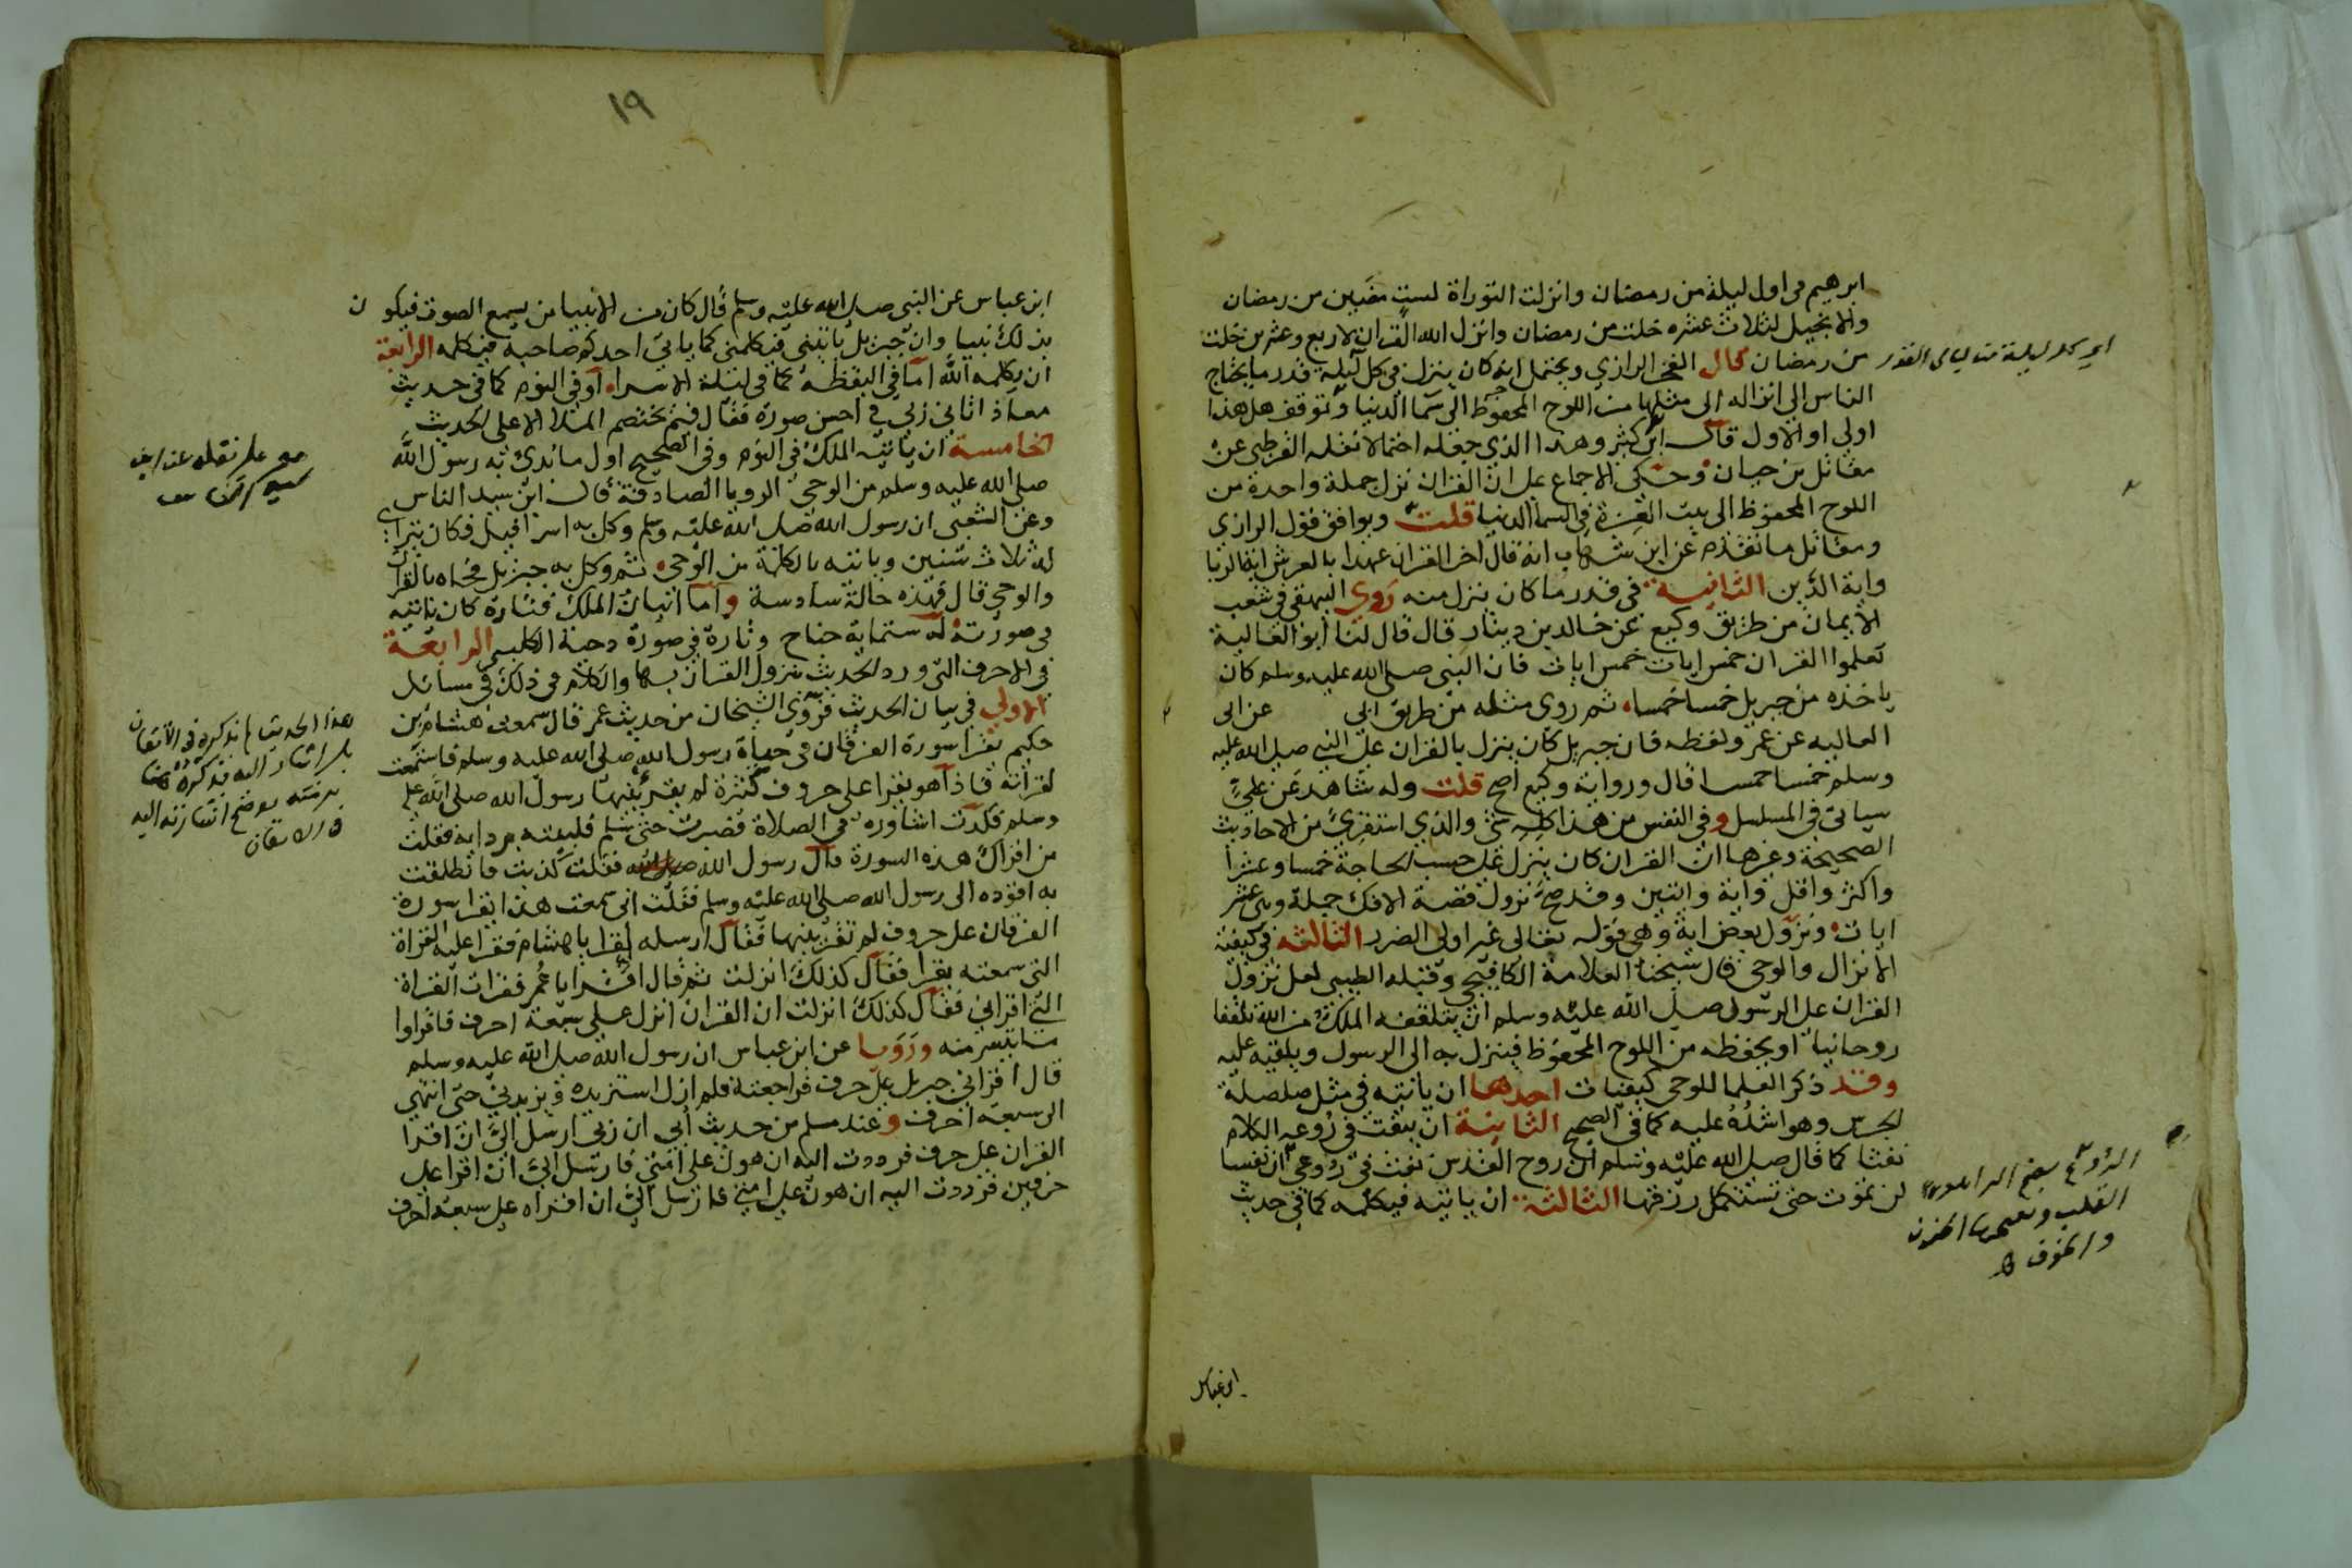 ابرهيم في اول ليلة من رمضان وانزلت التوراة لست مضين من رمضان
والانجيل لثلاث عشرة خلت من رمضان وانزل الله القران لاربع وعشرين خلت
من رمضان قال الفخر الرازي ويحتمل انه كان ينزل في كل ليلة قدر ما يحتاج
الناس الى انزاله الى مثلها من اللوح المحفوظ الى سما الدنيا وتوقف هل هذا
اولى او الاول قال ابن كثير وهذا الذي جعله احتمالا نقله القرطبي عن
مقاتل بن حيان وحكى الاجماع على ان القران نزل جملة واحدة من
اللوح المحفوظ الى بيت العزة في السما الدنيا قلت ويوافق قول الرازي
ومقاتل ما تقدم عن ابن شهاب انه قال اخر القران عهدا بالعرش اية الربا
واية الدين الثانية في قدر ما كان ينزل منه روى البيهقي في شعب
الايمان من طريق وكيع عن خالد بن دينار قال قال لنا ابو العالية
تعلموا القران خمس ايات خمس ايات فان النبي صلى الله عليه وسلم كان
ياخذه من جبريل خمسا خمسا ثم روى مثله من طريق ابي عن ابي
العاليه عن عمر ولفظه فان جبريل كان ينزل بالقران على النبي صلى الله عليه
وسلم خمسا خمسا قال ورواية وكيع اصح قلت وله شاهد عن علي
سياتي في المسلسل وفي النفس من هذا كله شي والذي استقرئ من الاحاديث
الصحيحة وغيرها ان القران كان ينزل على حسب الحاجة خمسا وعشرا
واكثر واقل واية وايتين وقد صح نزول قصة الافك جملة وهي عشر
ايات ونزول بعض اية وهي قوله تعالى غير اولى الضرر الثالثه في كيفية
الانزال والوحي قال شيخنا العلامة الكافيجي وقبله الطيبي لعل نزول
القران على الرسول صلى الله عليه وسلم ان يتلقفه الملك من الله تلقفا
روحانيا او يحفظه من اللوح المحفوظ فينزل به الى الرسول ويلقيه عليه
وقد ذكر العلما للوحي كيفيات احدها ان ياتيه في مثل صلصلة
الجرس وهو اشده عليه كما في الصحيح الثانية ان ينفث في روعه الكلام
نفثا كما قال صلى الله عليه وسلم ان روح القدس نفث في روعي ان نفسا
لن تموت حتى تستكمل رزقها الثالثة ان ياتيه فيكلمه كما في حديث
اي كل ليلة من ليالي القدر
الروع بفتح الراء
القلب
والخوف
ابن عباس
١٩
ابن عباس عن النبي صلى الله عليه وسلم قال كان من الانبيا من يسمع الصوت فيكون
بذلك نبيا وان جبريل ياتيني فيكلمني كما ياتي احدكم صاحبه فيكلمه الرابعة
ان يكلمه الله اما في اليقظه كما في ليلة الاسراء او في النوم كما في حديث
معاذ اتاني ربي في احسن صورة فقال فيم يختصم الملا الاعلى الحديث
الخامسة ان ياتيه الملك في النوم وفي الصحيح اول ما بدئ به رسول الله
صلى الله عليه وسلم من الوحي الرويا الصادقة قال ابن سيد الناس
وعن الشعبي ان رسول الله صلى الله عليه وسلم وكل به اسرافيل فكان يتراى
له ثلاث سنين وياتيه بالكلمة من الوحي ثم وكل به جبريل فجاه بالقران
والوحي قال فهذه حالة سادسة واما اتيان الملك فتارة كان ياتيه
في صورته له ستماية جناح وتارة في صورة دحية الكلبي الرابعة
في الاحرف التي ورد الحديث بنزول القران بها والكلام في ذلك في مسائل
الاولى في بيان الحديث فروى الشيخان من حديث عمر قال سمعت هشام بن
حكيم يقرا سورة الفرقان في حياة رسول الله صلى الله عليه وسلم فاستمعت
لقراته فاذا هو يقرا على حروف كثيرة لم يقرئنيها رسول الله صلى الله عليه
وسلم فكدت اشاوره في الصلاة فصبرت حتى سلم فلببته بردايه فقلت
من اقراك هذه السورة قال رسول الله فقلت كذبت فانطلقت
به اقوده الى رسول الله صلى الله عليه وسلم فقلت اني سمعت هذا يقرا سورة
الفرقان على حروف لم تقرئنيها فقال ارسله اقرا يا هشام فقرا عليه القراة
التي سمعته يقرا فقال كذلك انزلت ثم قال اقرا يا عمر فقرات القراة
التي اقراني فقال كذلك انزلت ان القران انزل على سبعة احرف فاقراوا
ما تيسر منه ورويا عن ابن عباس ان رسول الله صلى الله عليه وسلم
قال اقراني جبريل على حرف فراجعته فلم ازل استزيده ويزيدني حتى انتهى
الى سبعة احرف وعند مسلم من حديث ابي ان ربي ارسل الي ان اقرا
القران على حرف فرددت اليه ان هون على امتي فارسل الي ان اقرا على
حرفين فرددت اليه ان هون على امتي فارسل الي ان اقراه على سبعة احرف
هذا الحديث لم يذكره في الاتقان
بل اشار اليه فذكره هنا
برمته يوضح اشارته اليه
في الاتقان